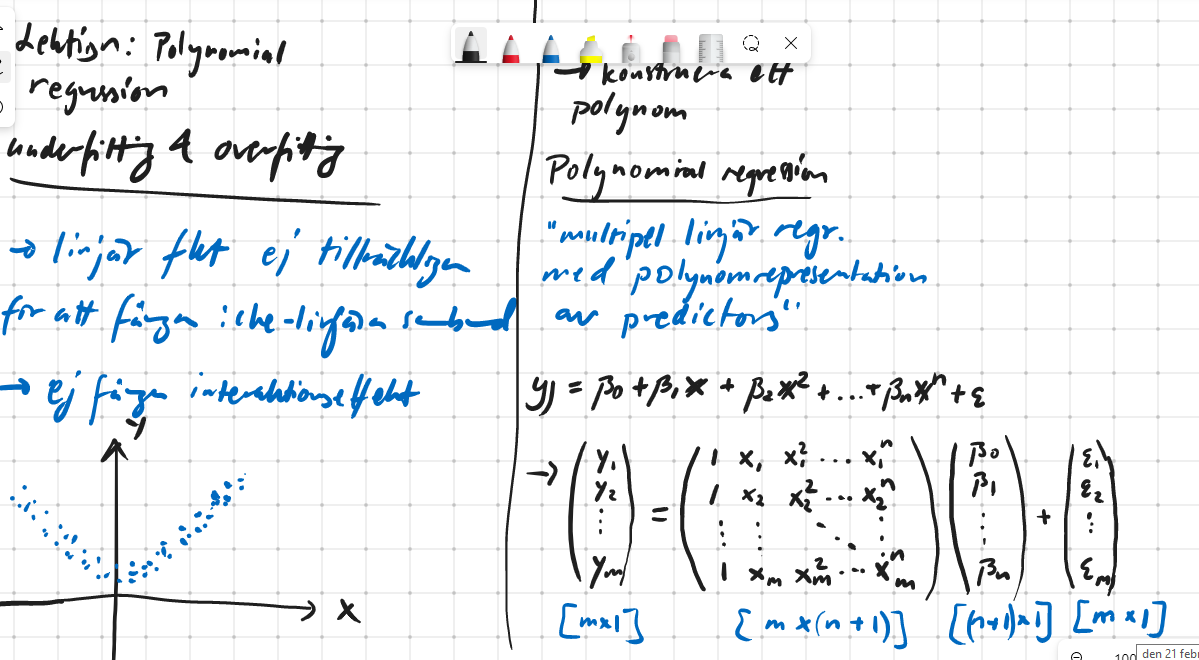 Lektion: Polynomial
regression
underfitting & overfitting
→ linjär fkt ej tillräckligen
för att fånga icke-linjära samband
→ ej fångar interaktionseffekt
y
x
→ konstruera ett
polynom
Polynomial regression
"multipel linjär regr.
med polynomrepresentation
av predictors"
yj = β₀ + β₁x + β₂x² + ... + βₙxⁿ + ε
→ (y₁ y₂ ⋮ yₘ) = (1 x₁ x₁² ... x₁ⁿ
1 x₂ x₂² ... x₂ⁿ
⋮ ⋮ ⋱ ⋮
1 xₘ xₘ² ... xₘⁿ) (β₀ β₁ ⋮ βₙ) + (ε₁ ε₂ ⋮ εₘ)
[m×1] [m×(n+1)] [(n+1)×1] [m×1]
100
den 21 febr